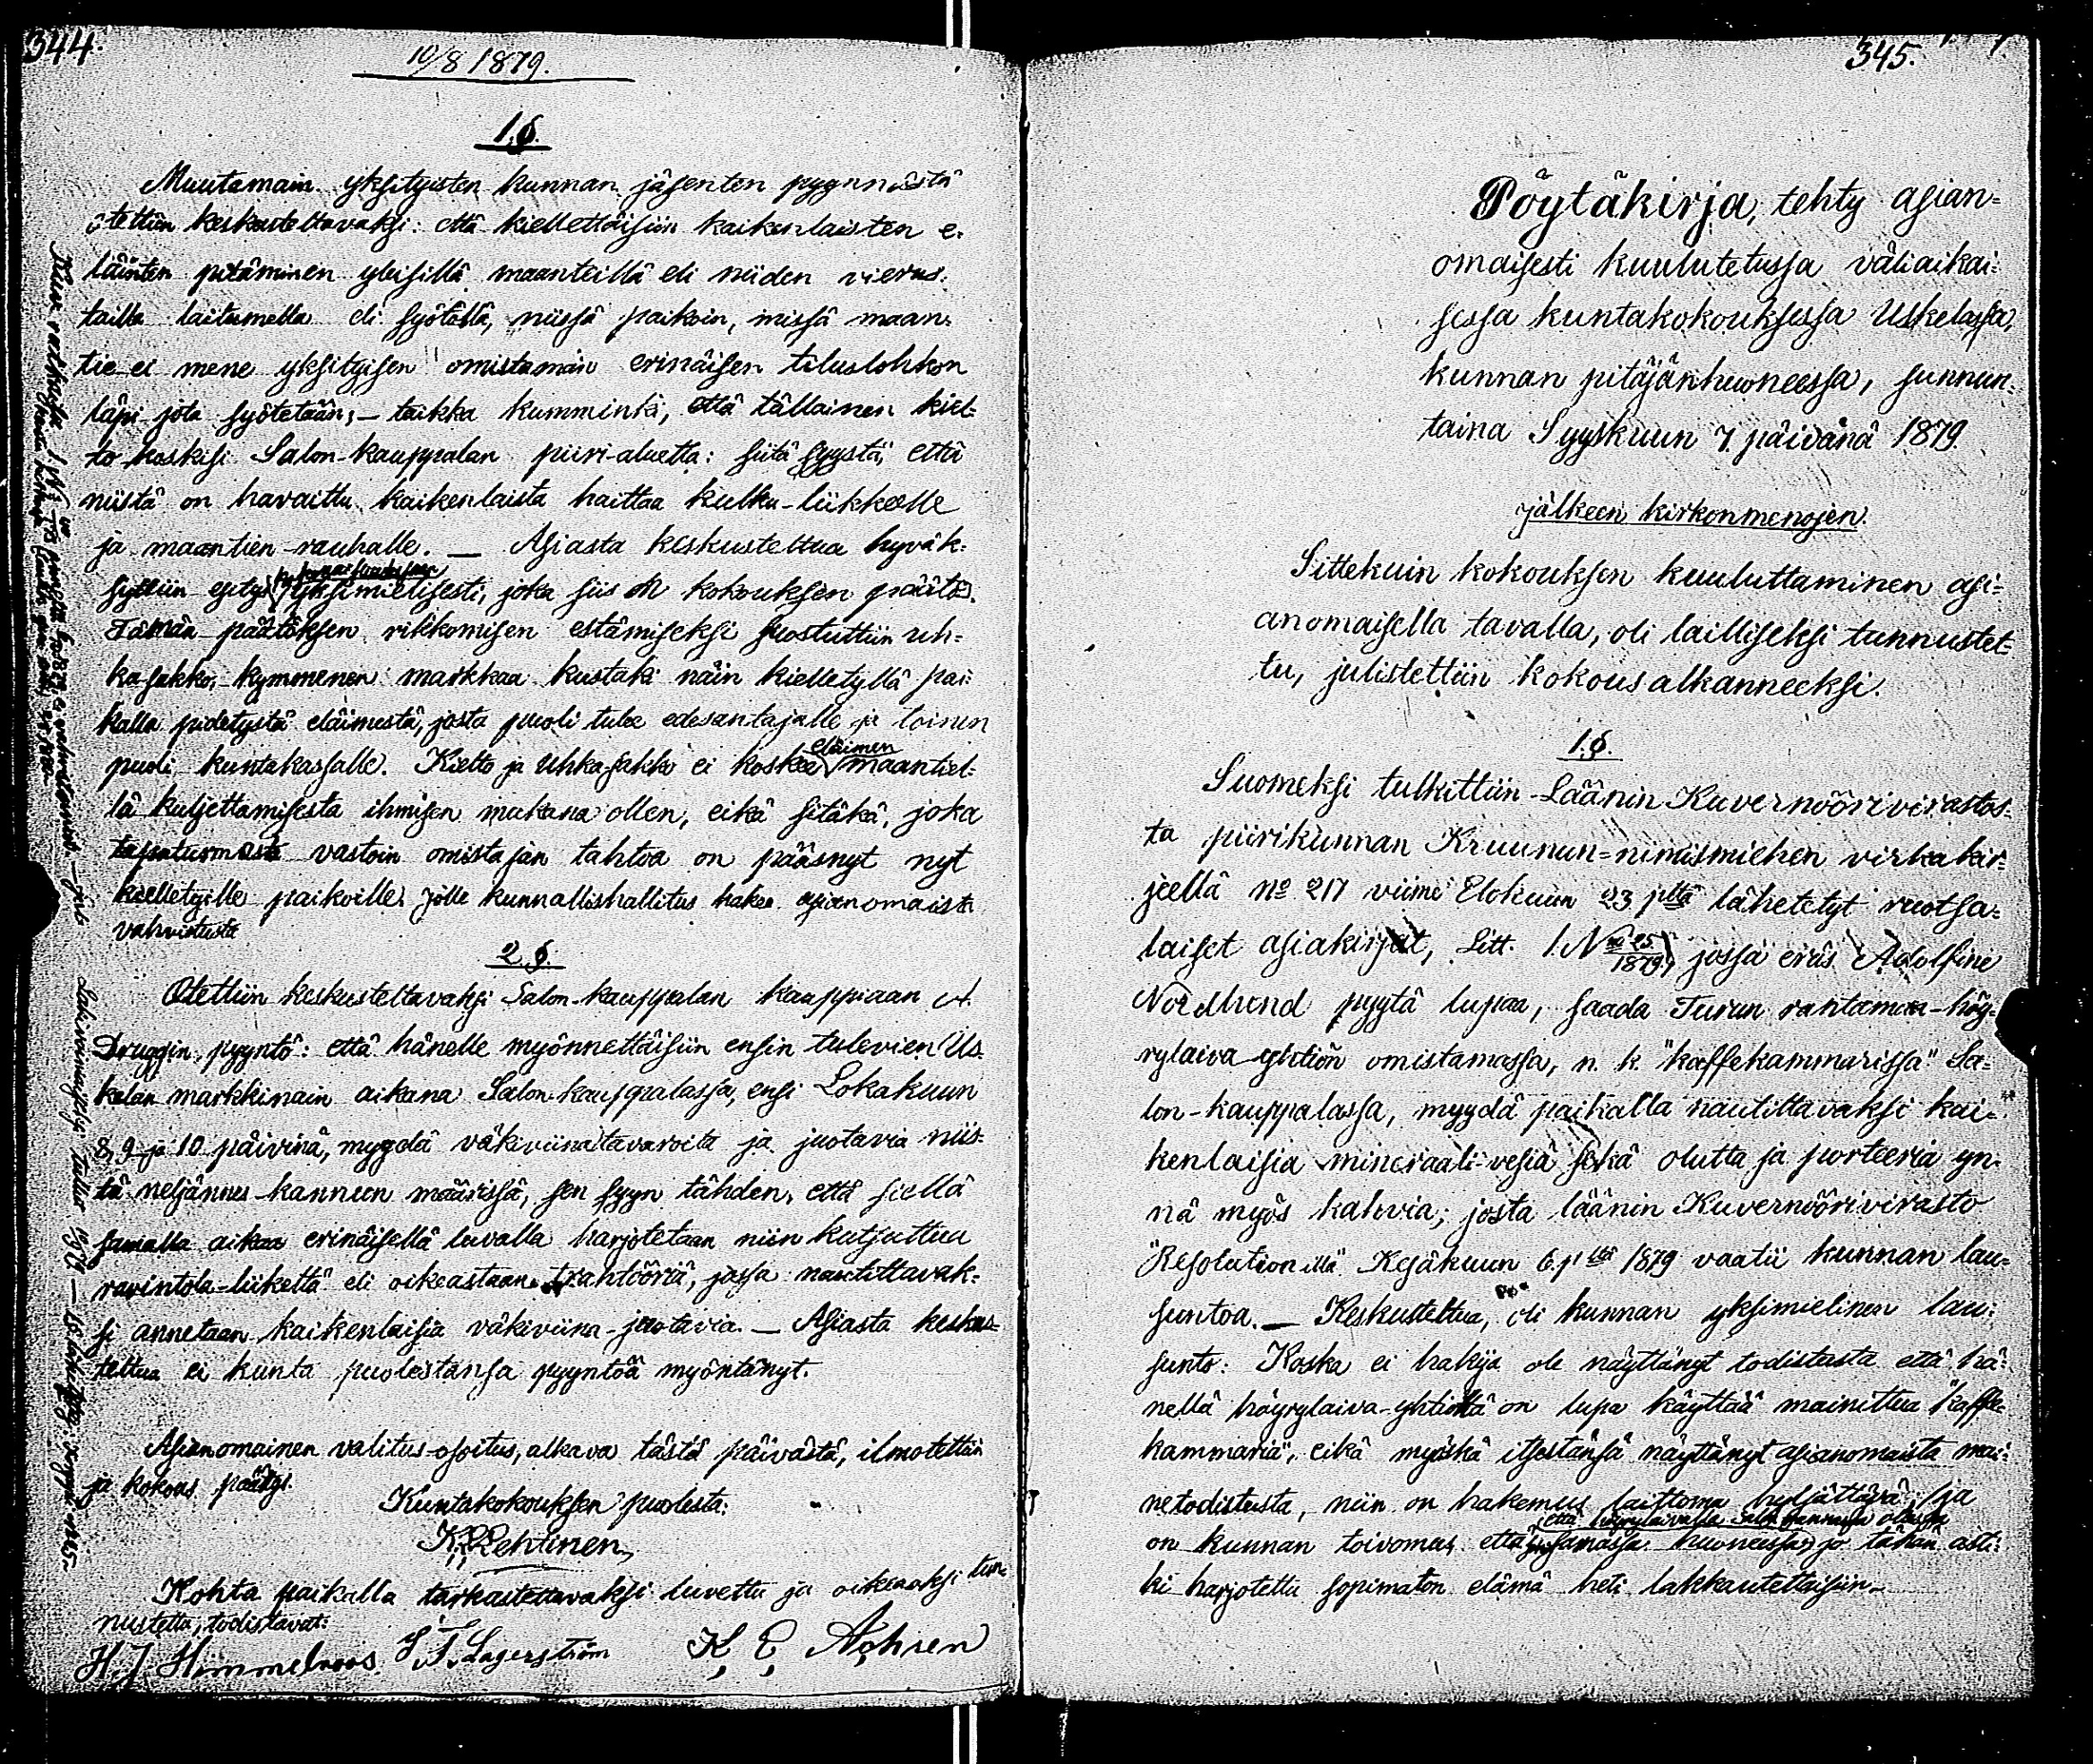 344.
10/8 1879.
1.§.
Muutamain yksityisten kunnan jäsenten pyynnöstä
otettiin keskusteltavaksi: että kiellettäisiin kaikenlaisten e-
läinten pitäminen yleisillä maanteillä eli niiden vierus-
tailla laitumella eli syötöllä, niissä paikoin, missä maan-
tie ei mene yksityisen omistaman erinäisen tiluslohkon
läpi jota syötetään; – taikka kumminki, että tällainen kiel-
to koskisi Salon-kauppalan piiri-aluetta: siitä syystä, että
niistä on havaittu kaikenlaista haittaa kulku-liikkeelle
ja maantien-rauhalle. — Asiasta keskusteltua hyväk-
syttiin esitys yksimielisesti, joka siis on kokouksen päätös.
Tämän päätöksen rikkomisen estämiseksi suostuttiin uh-
ka-sakko, kymmenen markkaa kustaki näin kielletyllä pai-
kalla pidetystä eläimestä, josta puoli tulee edesantajalle ja toinen
puoli kuntakassalle. Kielto ja Uhka-sakko ei koske eläimen maantiel-
lä kuljettamisesta ihmisen mukana ollen, eikä sitäkä, joka
tapaturmasta vastoin omistajan tahtoa on päässyt nyt
kielletyille paikoille. Jolle kunnallishallitus hakee asianomaista
vahvistusta
2.§.
Otettiin keskusteltavaksi Salon-kauppalan kauppiaan A.
Druggin, pyyntö: että hänelle myönnettäisiin ensin tulevien Us-
kelan markkinain aikana Salon kauppalassa, ensi Lokakuun
8, 9 ja 10 päivinä, myydä väkiviinatavaroita ja juotavia niis-
tä neljännes-kannun määrissä, sen syyn tähden, että siellä
samalla aikaa erinäisellä luvalla harjotetaan niin kutsuttua
ravintola-liikettä eli oikeastaan trahtööriä, jossa nautittavak-
si annetaan kaikenlaisia väkiviina-juotavia. — Asiasta keskus-
teltua ei kunta puolestansa pyyntöä myöntänyt.
Asianomainen valitus-osoitus, alkava tästä päivästä, ilmotettiin
ja kokous päättyi.
Kuntakokouksen puolesta:
K. Lehtinen
Kohta paikalla tarkastettavaksi luvettu ja oikeaksi tun-
nustettu, todistavat:
H. J. Himmelroos. Lagerström K E Achren
345.
Pöytäkirja, tehty asian-
omaisesti kuulutetussa väliaikai-
sessa kuntakokouksessa Uskelassa,
kunnan pitäjänhuoneessa, sunnun-
taina Syyskuun 7. päivänä 1879.
jälkeen kirkonmenojen.
Sittekuin kokouksen kuuluttaminen asi-
anomaisella tavalla, oli lailliseksi tunnustet-
tu, julistettiin kokous alkanneeksi.
1.§.
Suomeksi tulkittiin Läänin Kuvernöörivirastos-
ta piirikunnan Kruunun-nimismiehen virkakir-
jeellä No 217 viime Elokuun 23 p:ltä lähetetyt ruotsa-
laiset asiakirjat, Litt. 1. N 25 1879, jossa eräs Adolfine
Nordlund pyytä lupaa, saada Turun rantamaa-höy-
rylaiva-yhtiön omistamassa, n. k. "kaffekammarissa" Sa-
lon-kauppalassa, myydä paikalla nautittavaksi kai-
kenlaisia mineraali-vesiä sekä olutta ja porteeria yn-
nä myös kahvia; josta läänin Kuvernöörivirasto
"Resolution illa" Kesäkuun 6. p:ltä 1879 vaatii kunnan lau-
suntoa. — Keskusteltua, oli kunnan yksimielinen lau-
sunto: Koska ei hakija ole näyttänyt todistusta että hä-
nellä höyrylaiva-yhtiöltä on lupa käyttää mainittua "kaffe-
kammaria", eikä myöskä itsestänsä näyttänyt asianomaista mai-
netodistusta, niin on hakemus laittoma hyljättävä; ja
että höyrylaivalla Salon rannassa olossa
on kunnan toivomus että samassa huoneessa jo tähän asti-
ki harjotettu sopimaton elämä heti lakkautettaisiin.